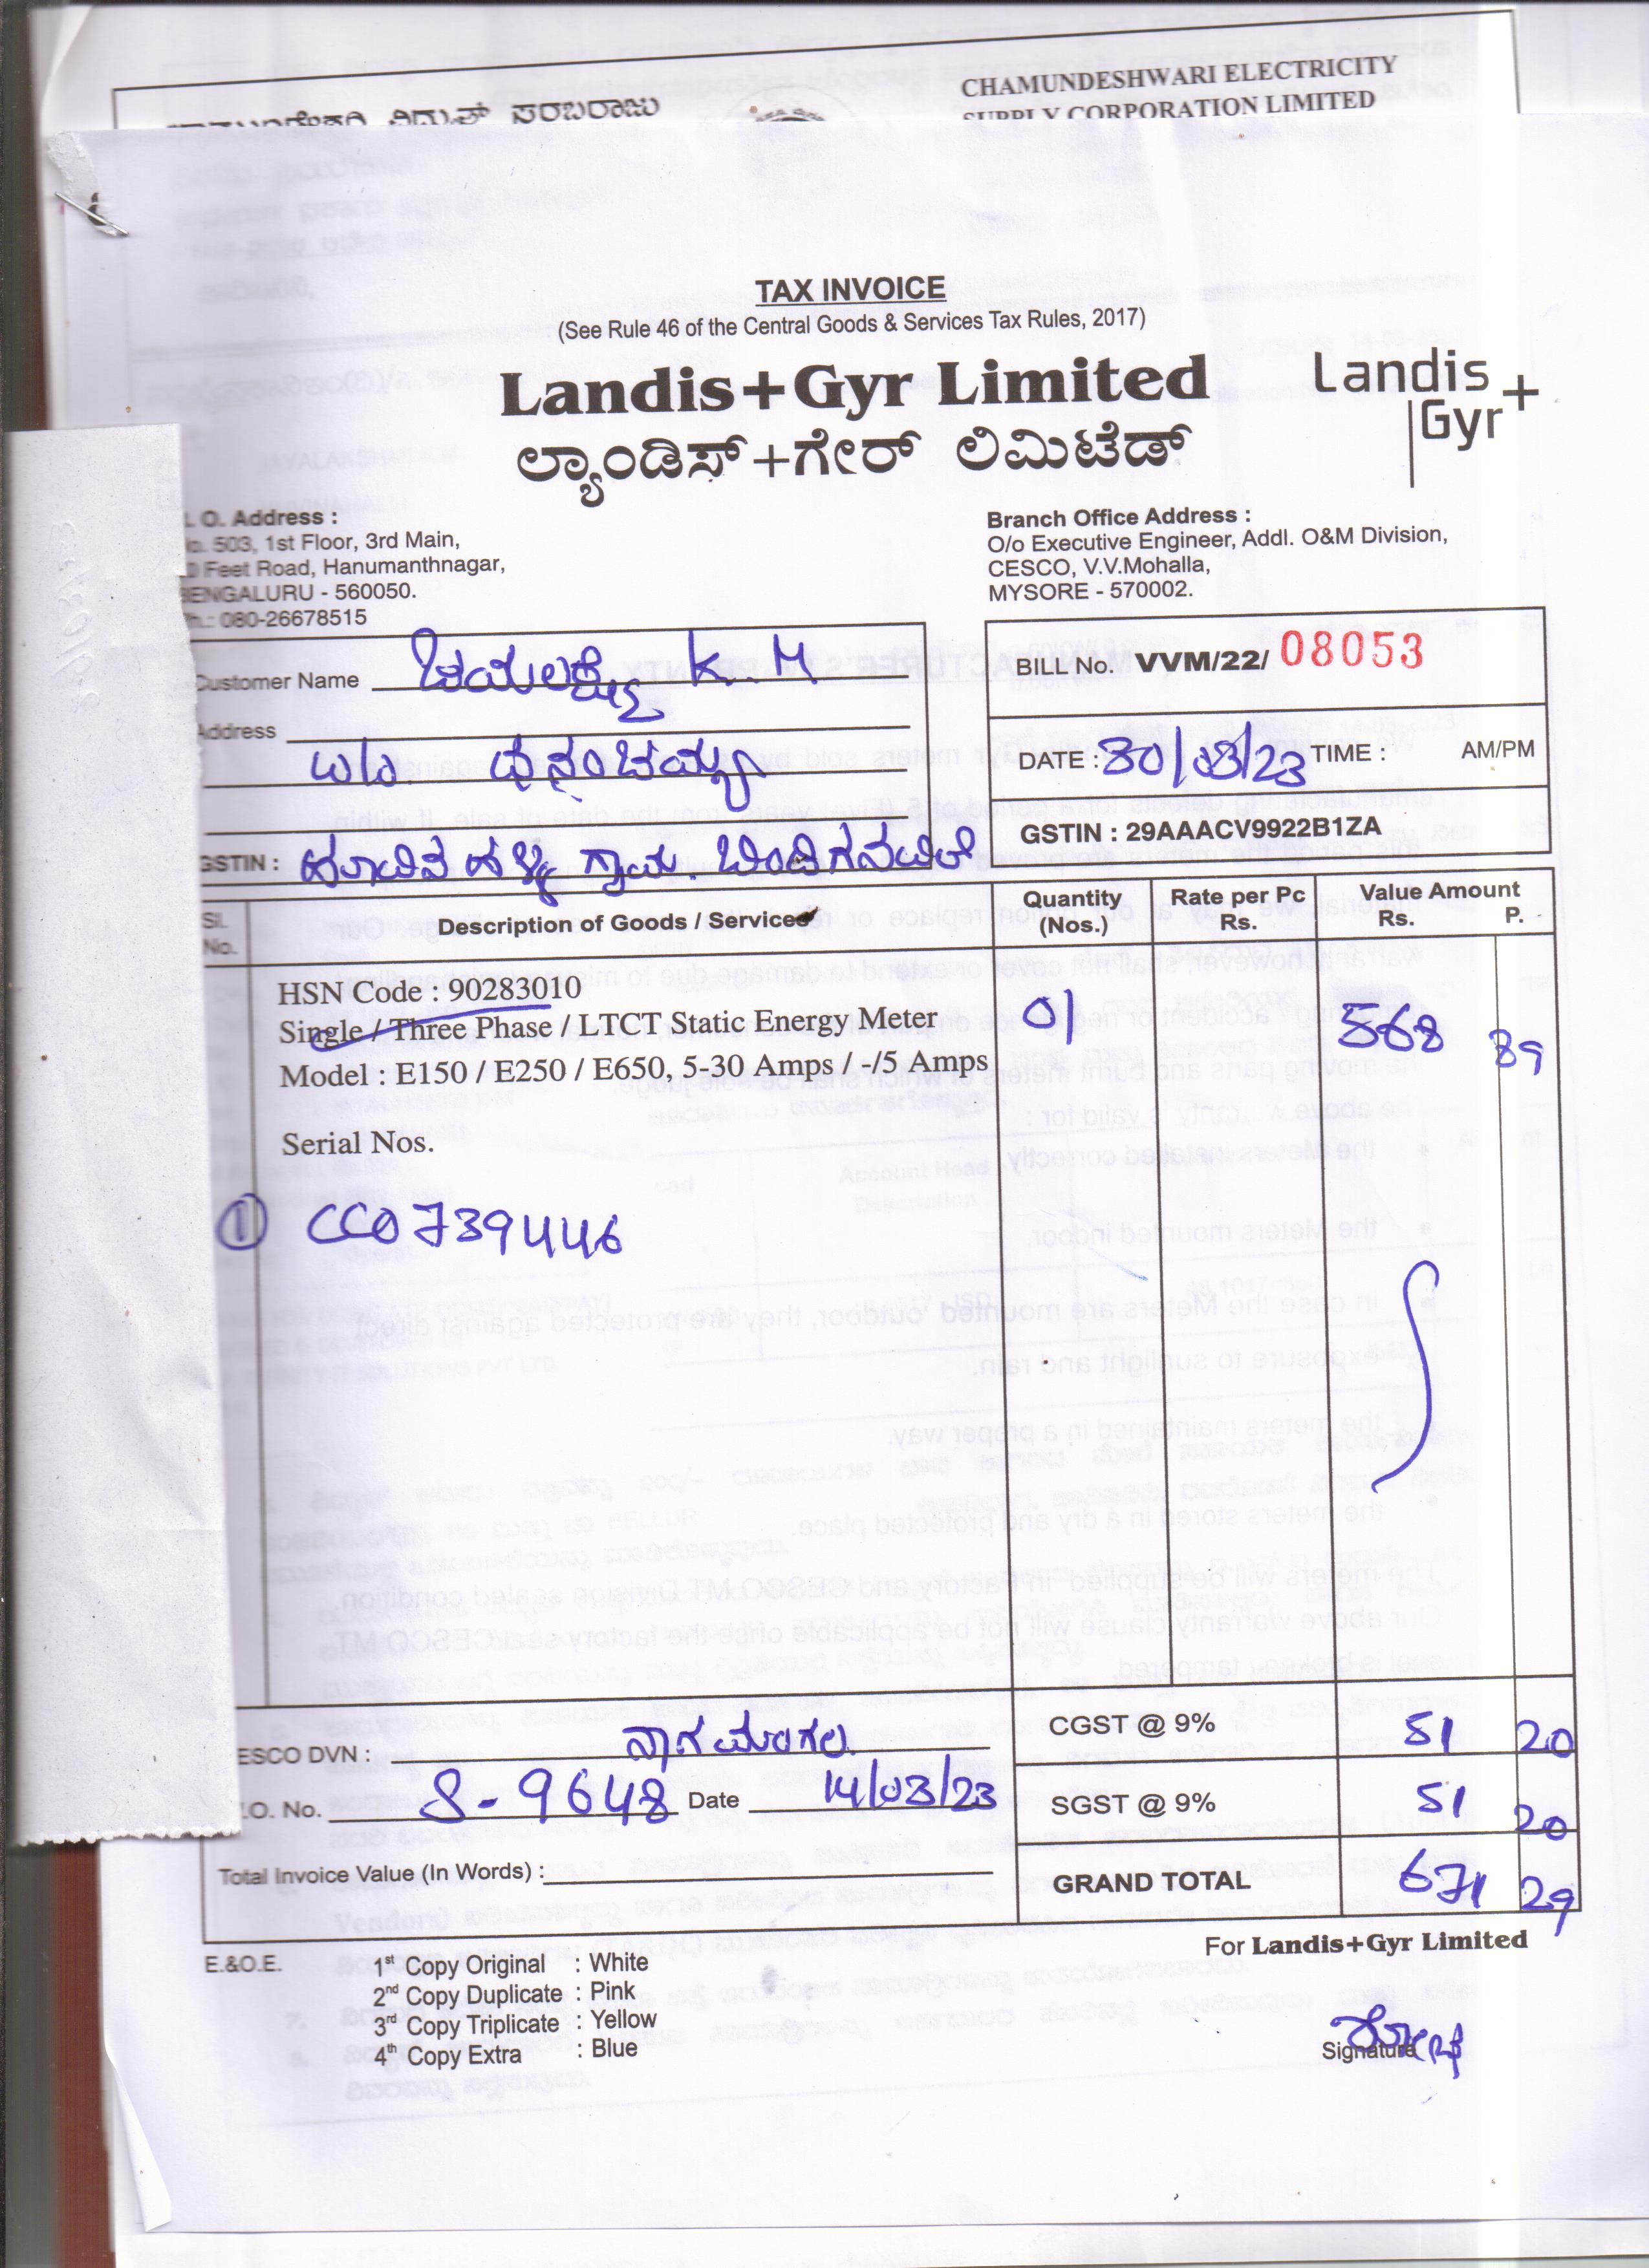 CHAMUNDESHWARI ELECTRICITY
SUPPLY CORPORATION LIMITED
TAX INVOICE
(See Rule 46 of the Central Goods & Services Tax Rules, 2017)
Landis+Gyr Limited
ಲ್ಯಾಂಡಿಸ್+ಗೇರ್ ಲಿಮಿಟೆಡ್
Landis
Gyr+
O. Address :
503, 1st Floor, 3rd Main,
Feet Road, Hanumanthnagar,
BENGALURU - 560050.
Ph.: 080-26678515
Branch Office Address :
O/o Executive Engineer, Addl. O&M Division,
CESCO, V.V.Mohalla,
MYSORE - 570002.
Customer Name ಜಯಲಕ್ಷ್ಮಿ K. M
Address
ಧನಂಜಯ್ಯ
GSTIN : ಹೂವಿನಹಳ್ಳಿ ಗ್ರಾಮ. ಬಿಂಡಿಗನವಿಲೆ
BILL No. VVM/22/ 08053
DATE : 30/03/23 TIME : AM/PM
GSTIN : 29AAACV9922B1ZA
Sl. No. Description of Goods / Services Quantity (Nos.) Rate per Pc Rs. Value Amount Rs. P.
HSN Code : 90283010
Single / Three Phase / LTCT Static Energy Meter 01 568 89
Model : E150 / E250 / E650, 5-30 Amps / -/5 Amps
Serial Nos.
① CC0739446
ESCO DVN : ನಾಗಮಂಗಲ
CGST @ 9% 51 20
.O. No. S-9648 Date 14/03/23
SGST @ 9% 51 20
Total Invoice Value (In Words) :
GRAND TOTAL 671 29
For Landis+Gyr Limited
E.&O.E.
1st Copy Original : White
2nd Copy Duplicate : Pink
3rd Copy Triplicate : Yellow
4th Copy Extra : Blue
Signature